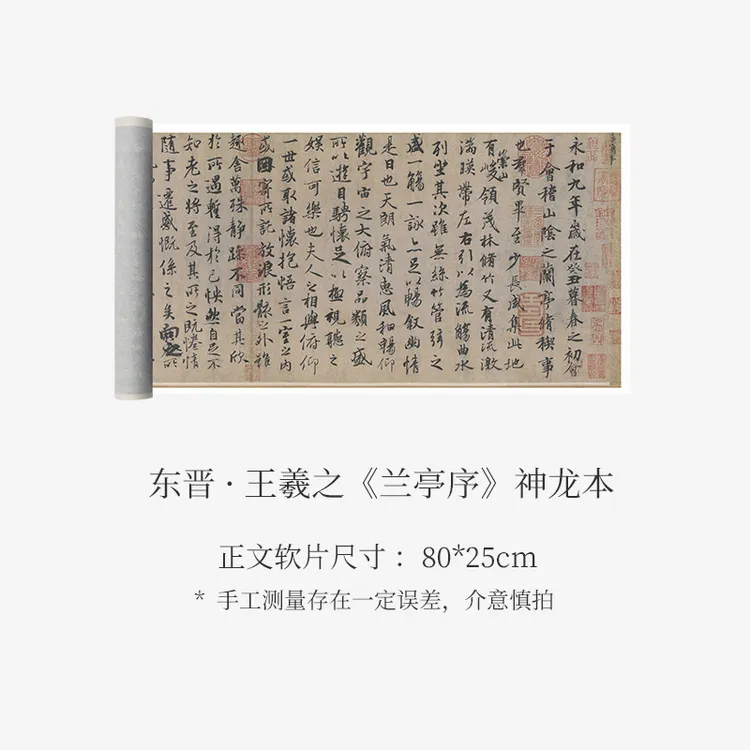 永和九年歲在癸丑暮春之初會
于會稽山陰之蘭亭脩稧事
也羣賢畢至少長咸集此地
有崇山峻領茂林脩竹又有清流激
湍暎帶左右引以為流觴曲水
列坐其次雖無絲竹管弦之
盛一觴一詠亦足以暢叙幽情
是日也天朗氣清惠風和暢仰
觀宇宙之大俯察品類之盛
所以遊目騁懷足以極視聽之
娛信可樂也夫人之相與俯仰
一世或取諸懷抱悟言一室之內
或因寄所託放浪形骸之外雖
趣舍萬殊靜躁不同當其欣
於所遇暫得於己怏然自足不
知老之將至及其所之既惓情
隨事遷感慨係之矣向之所
东晋·王羲之《兰亭序》神龙本
正文软片尺寸：80*25cm
* 手工测量存在一定误差，介意慎拍